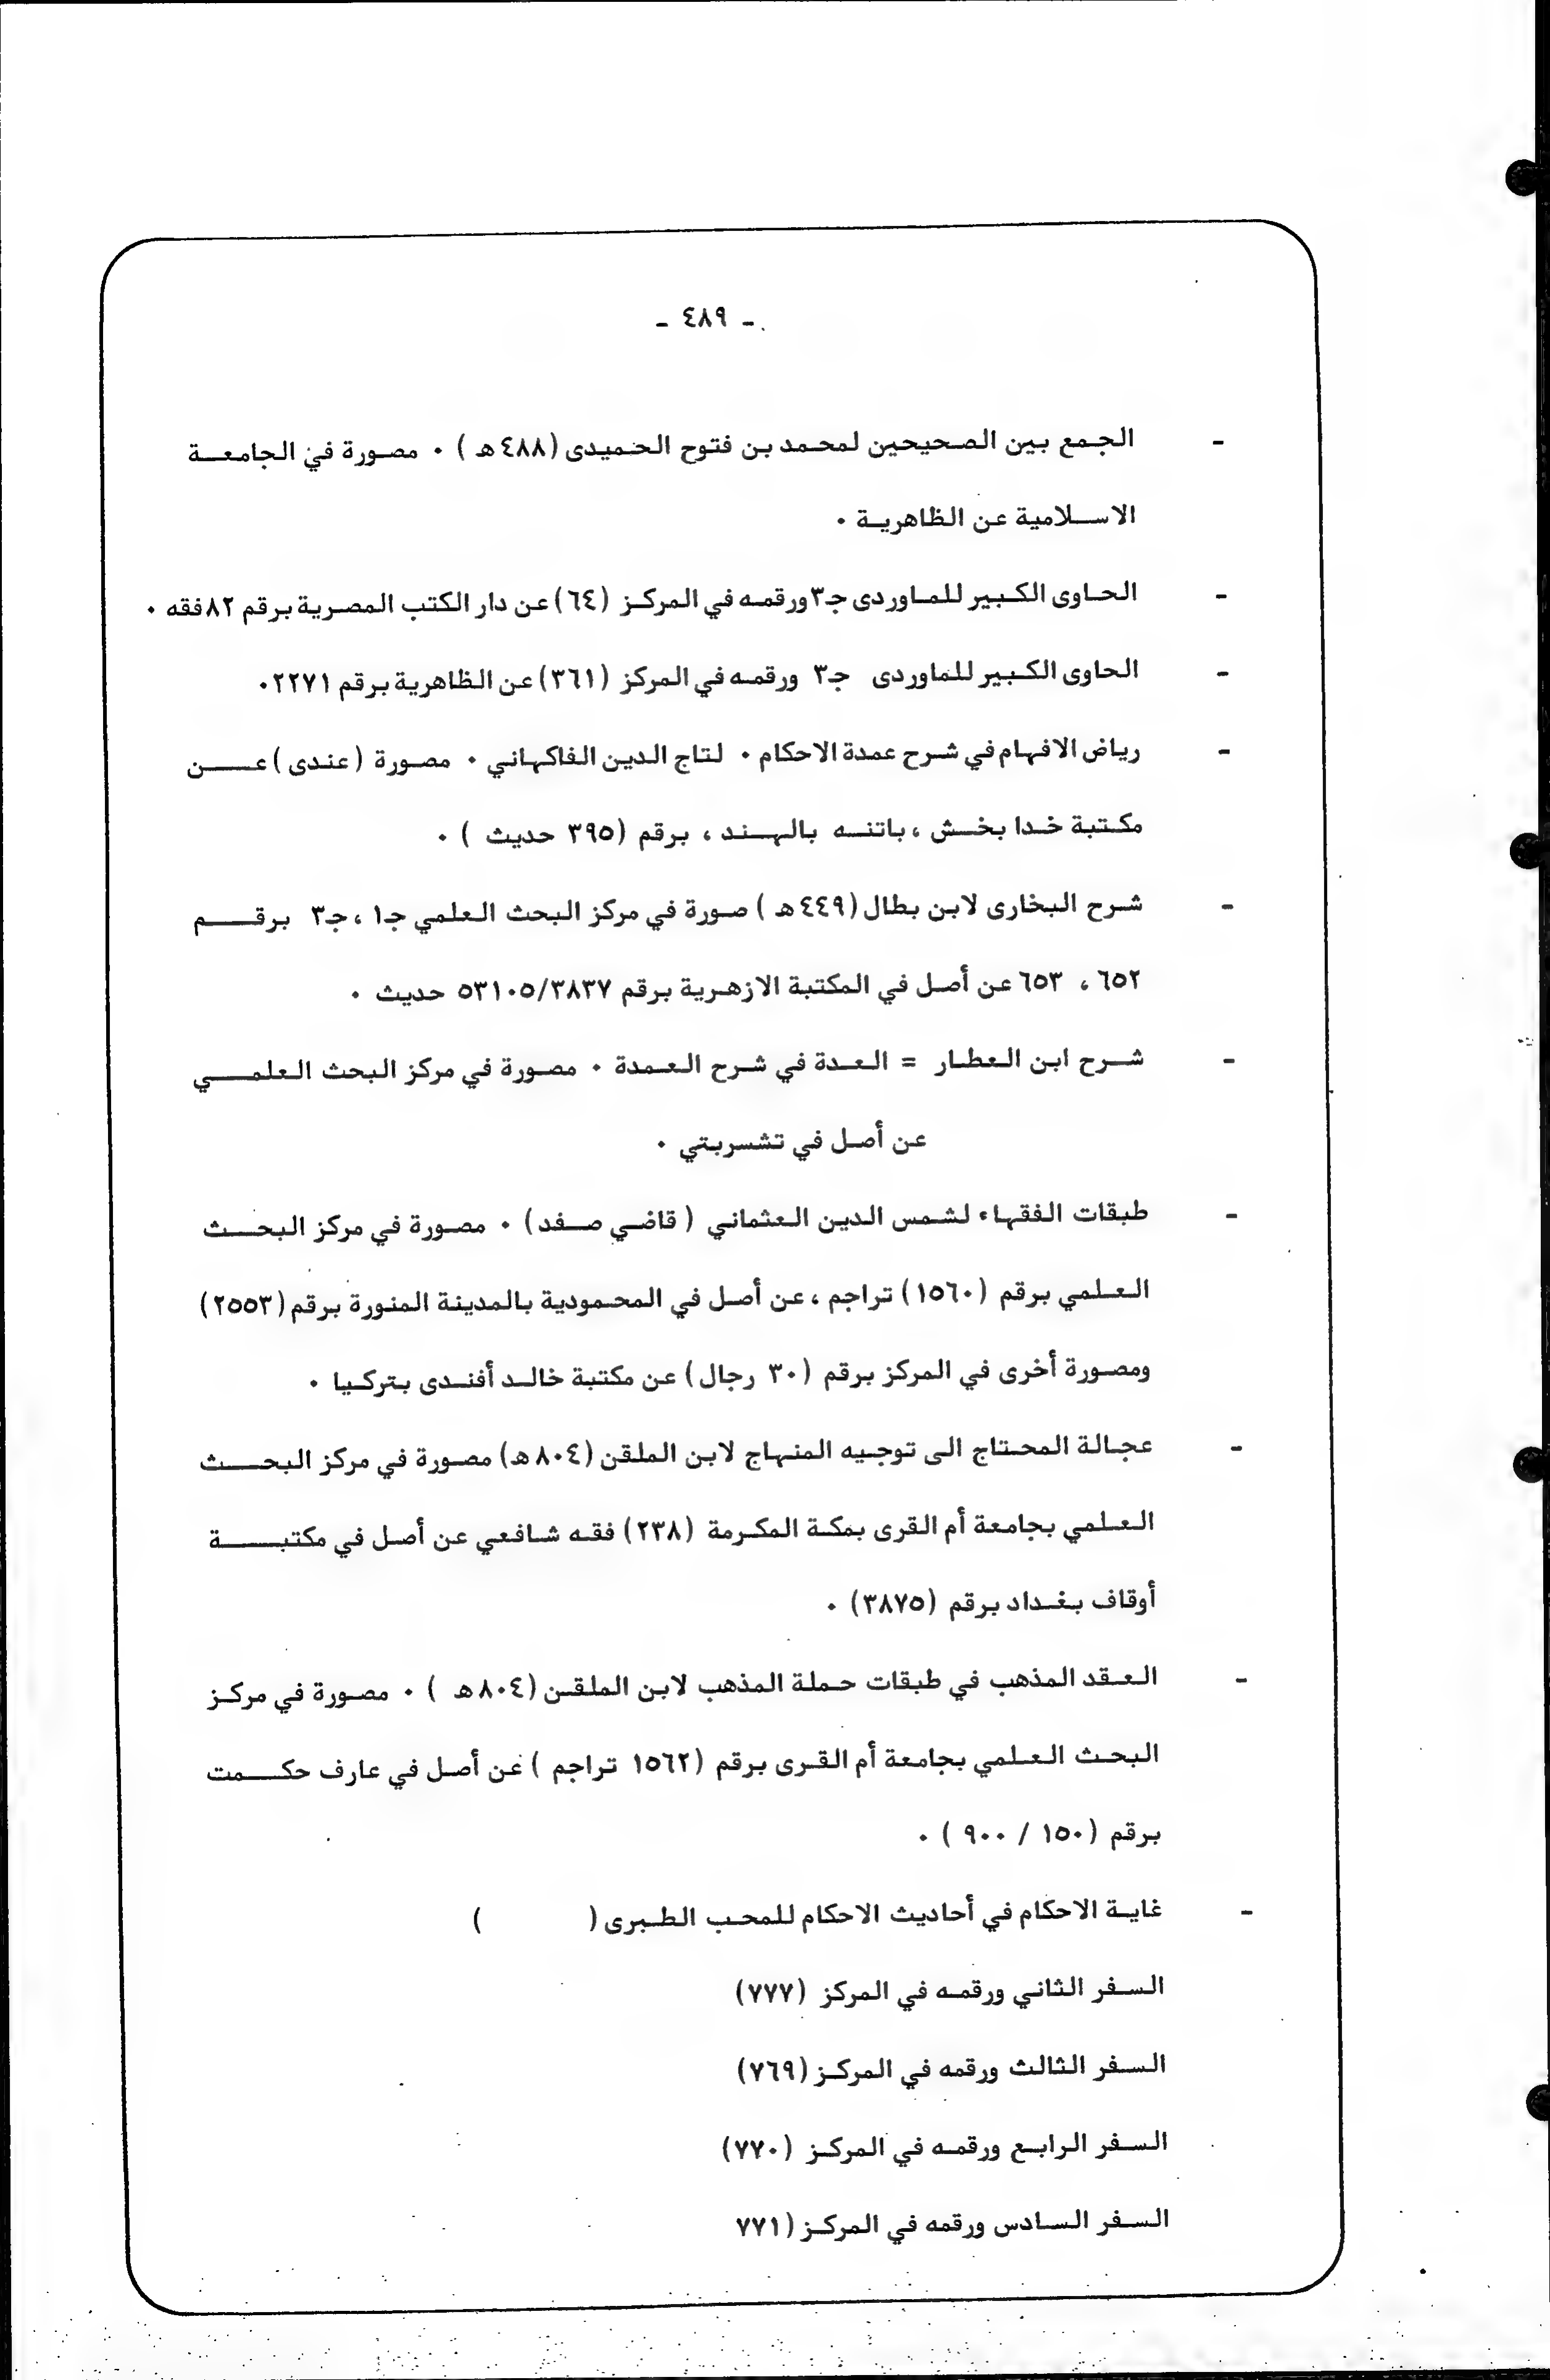 - ٤٨٩ -
- الجمع بين الصحيحين لمحمد بن فتوح الحميدى (٤٨٨ هـ ) ٠ مصورة في الجامعة
الاسلامية عن الظاهرية ٠
- الحاوى الكبير للماوردى جـ٣ ورقمه في المركز (٦٤) عن دار الكتب المصرية برقم ٨٢ فقه ٠
- الحاوى الكبير للماوردى جـ٣ ورقمه في المركز (٣٦١) عن الظاهرية برقم ٢٢٧١ ٠
- رياض الافهام في شرح عمدة الاحكام ٠ لتاج الدين الفاكهاني ٠ مصورة (عندى) عن
مكتبة خدا بخش ، باتنه بالهند ، برقم (٣٩٥ حديث ) ٠
- شرح البخارى لابن بطال (٤٤٩ هـ ) صورة في مركز البحث العلمي جـ١ ، جـ٣ برقم
٦٥٢ ، ٦٥٣ عن أصل في المكتبة الازهرية برقم ٥٣١٠٥/٣٨٣٧ حديث ٠
- شرح ابن العطار = العدة في شرح العمدة ٠ مصورة في مركز البحث العلمي
عن أصل في تشسربتي ٠
- طبقات الفقهاء لشمس الدين العثماني ( قاضي صفد) ٠ مصورة في مركز البحث
العلمي برقم (١٥٦٠) تراجم ، عن أصل في المحمودية بالمدينة المنورة برقم (٢٥٥٣)
ومصورة أخرى في المركز برقم (٣٠ رجال) عن مكتبة خالد أفندى بتركيا ٠
- عجالة المحتاج الى توجيه المنهاج لابن الملقن (٨٠٤ هـ) مصورة في مركز البحث
العلمي بجامعة أم القرى بمكة المكرمة (٢٣٨) فقه شافعي عن أصل في مكتبة
أوقاف بغداد برقم (٣٨٧٥) ٠
- العقد المذهب في طبقات حملة المذهب لابن الملقن (٨٠٤ هـ ) ٠ مصورة في مركز
البحث العلمي بجامعة أم القرى برقم (١٥٦٢ تراجم ) عن أصل في عارف حكمت
برقم (١٥٠ / ٩٠٠ ) ٠
- غاية الاحكام في أحاديث الاحكام للمحب الطبرى ( )
السفر الثاني ورقمه في المركز (٧٧٧)
السفر الثالث ورقمه في المركز (٧٦٩)
السفر الرابع ورقمه في المركز (٧٧٠)
السفر السادس ورقمه في المركز (٧٧١